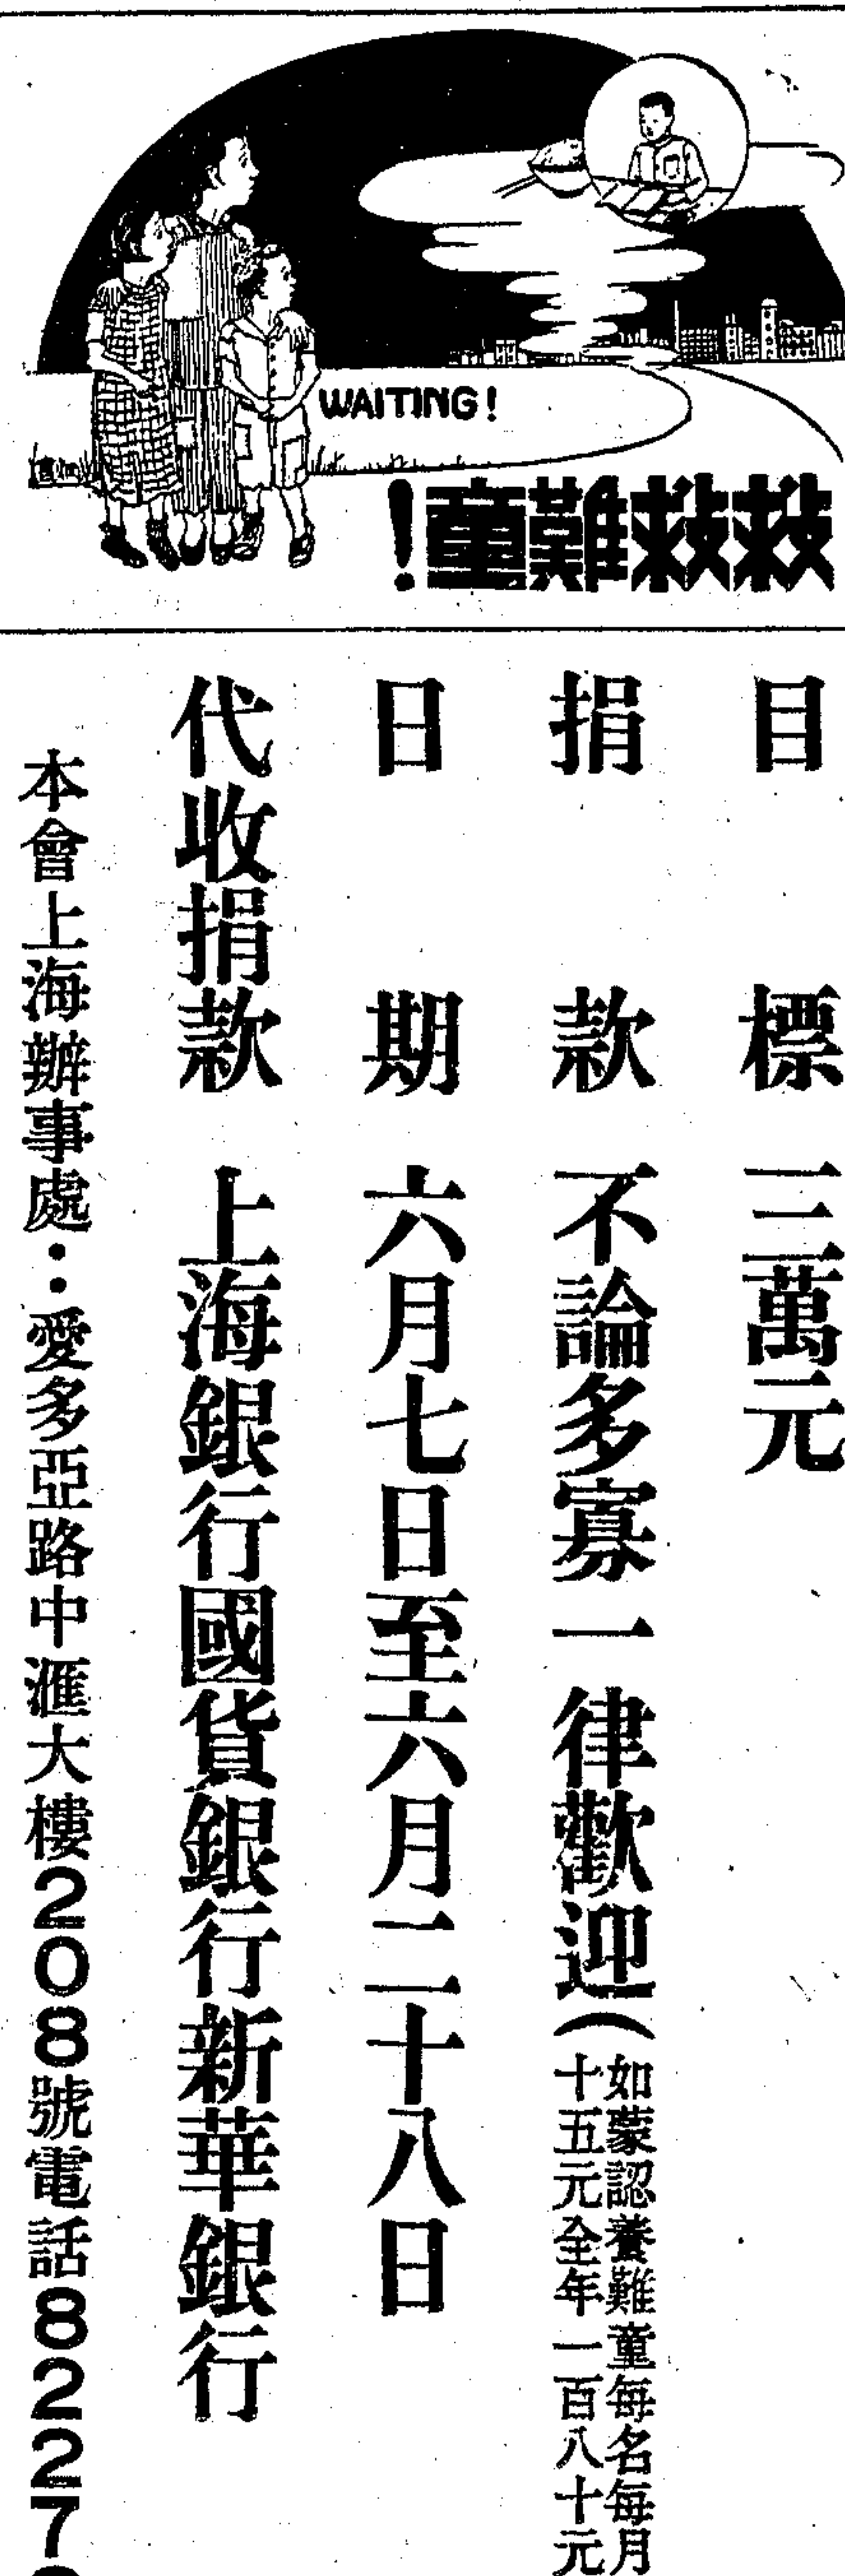 WAITING!
救救難童!
目標 三萬元
捐款 不論多寡一律歡迎(如蒙認養難童每名每月
十五元全年一百八十元
日期 六月七日至六月二十八日
代收捐款 上海銀行國貨銀行新華銀行
本會上海辦事處:愛多亞路中滙大樓208號電話8227